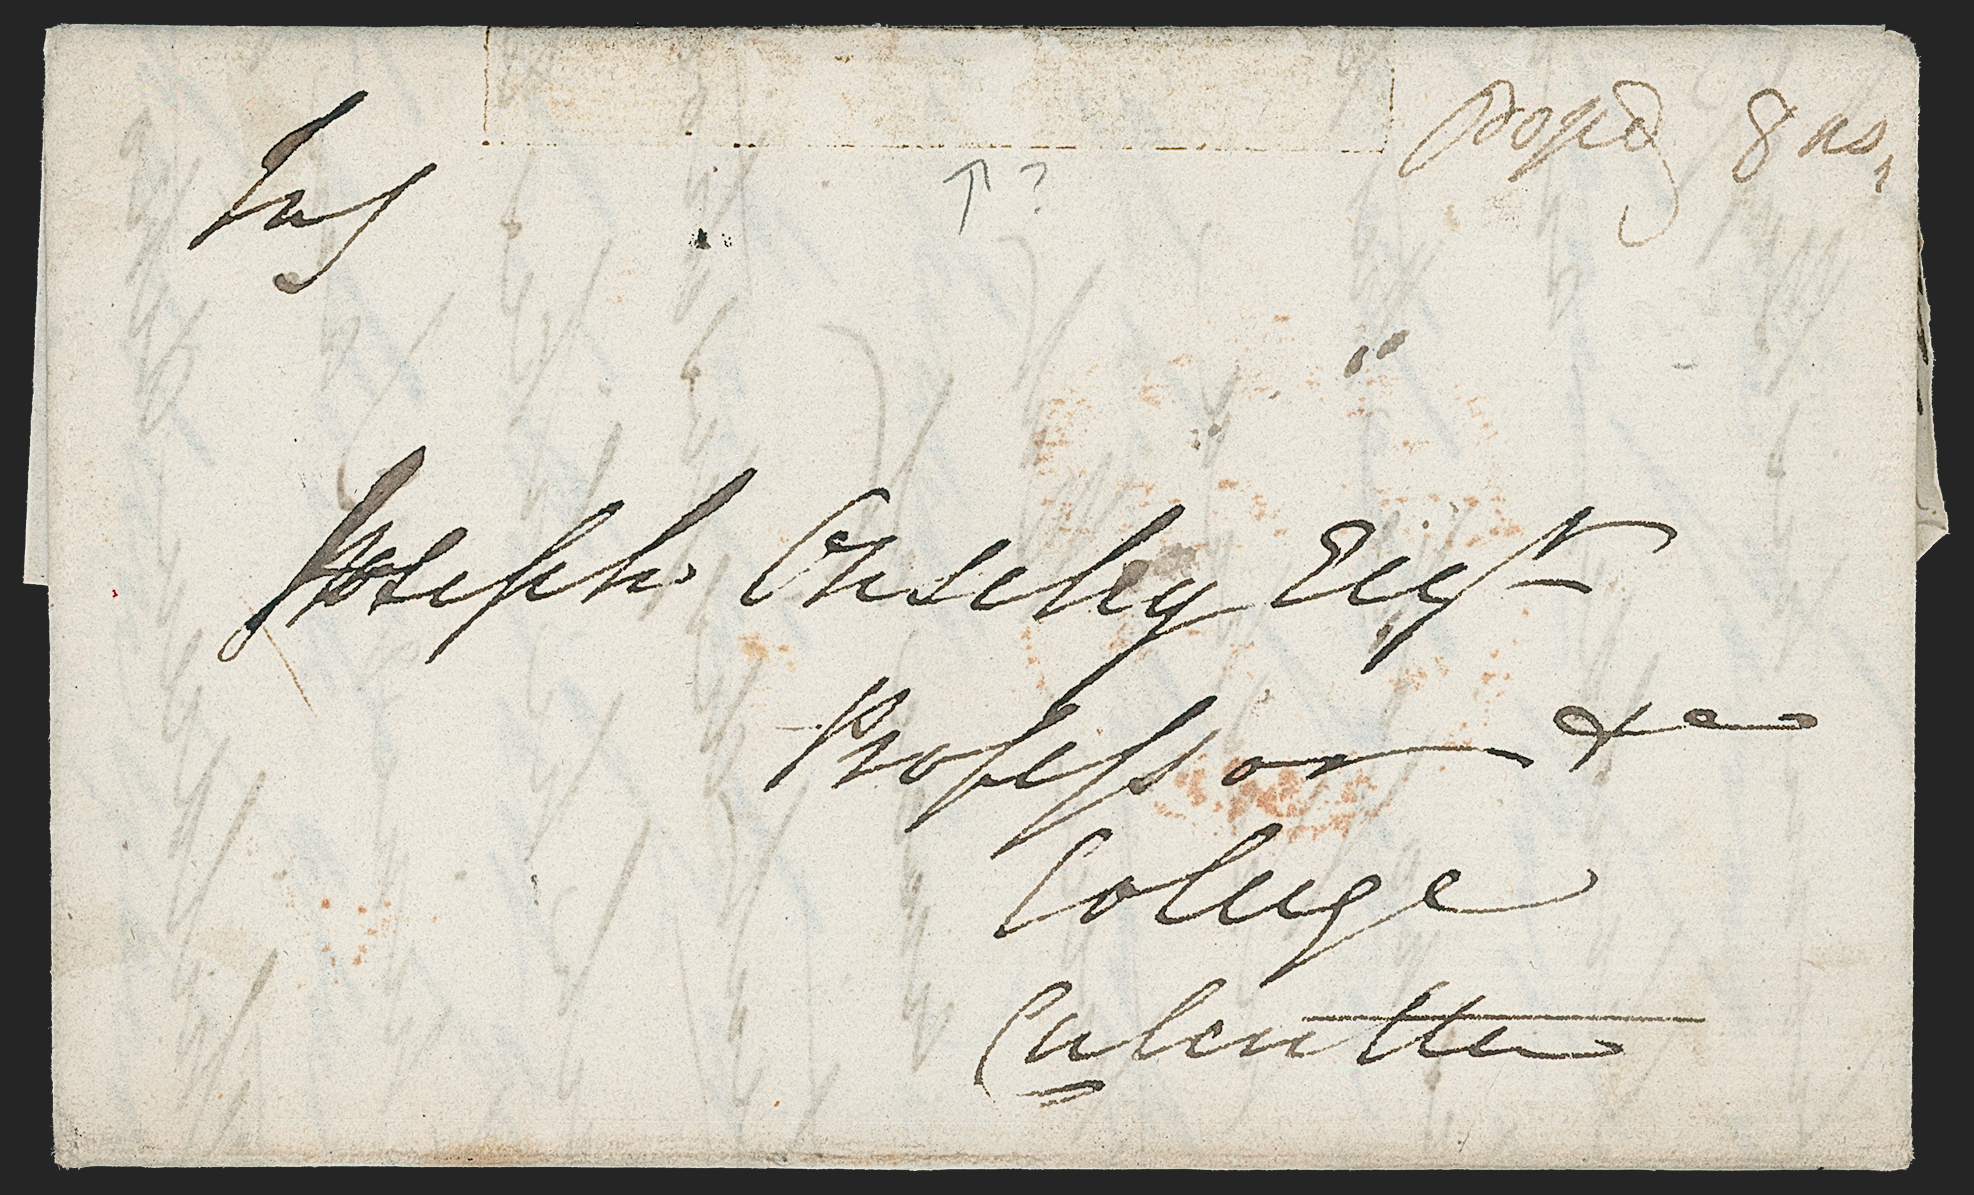 8 as.
Joseph Ouseley Esqr
Professor &c
College
Calcutta